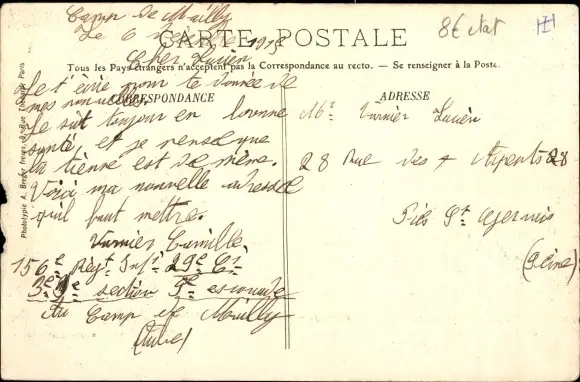 Camp de Mailly
Le 6 1915
CARTE POSTALE
8€ état
Cher Lucien
Tous les Pays étrangers n'acceptent pas la Correspondance au recto. — Se renseigner à la Poste.
CORRESPONDANCE
Je t'écris pour te donner de
mes nouvelles.
Je suis toujour en bonne
santé, et je pense que
la tienne est de même.
Voici ma nouvelle adresse
qu'il faut mettre.
Varnier Camille,
156e Régt. Infie 29e Cie
3e section 9e escouade
Au Camp de Mailly
(Aube)
ADRESSE
Mr Varnier Lucien
28 Rue des 7 Arpents 28
Prés St Gervais
(Seine)
Phototypie A. Breger frères, Rue Thibaud, Paris